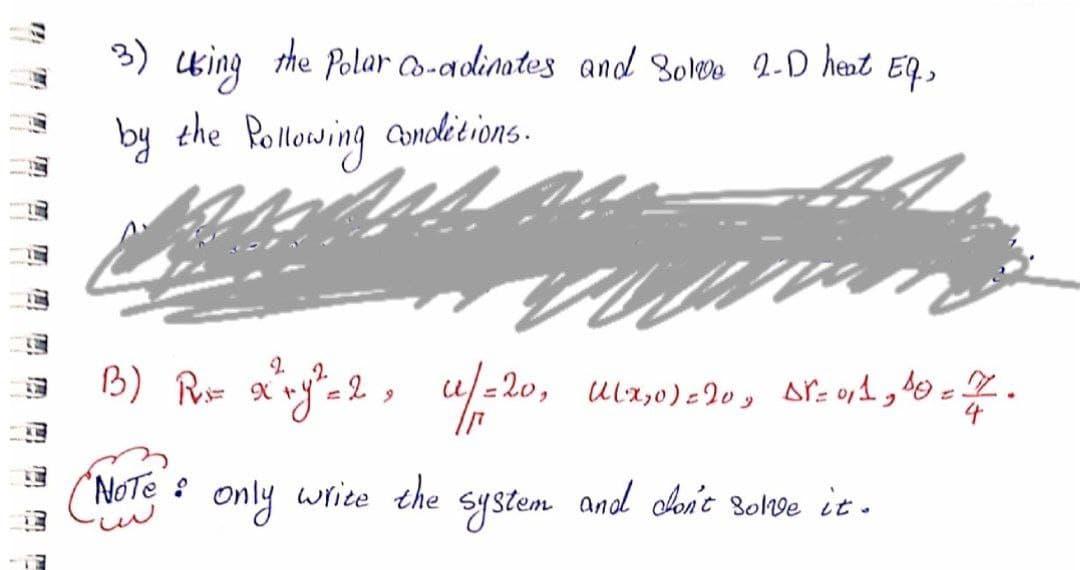 3) Using the Polar Co-ordinates and Solve 2-D heat Eq,
by the Following Conditions.
B) R:= x²+y²=2, u/Γ=20, u(x,0)=20, Δr=0,1, Δθ=π/4.
NOTE: only write the system and don't Solve it.